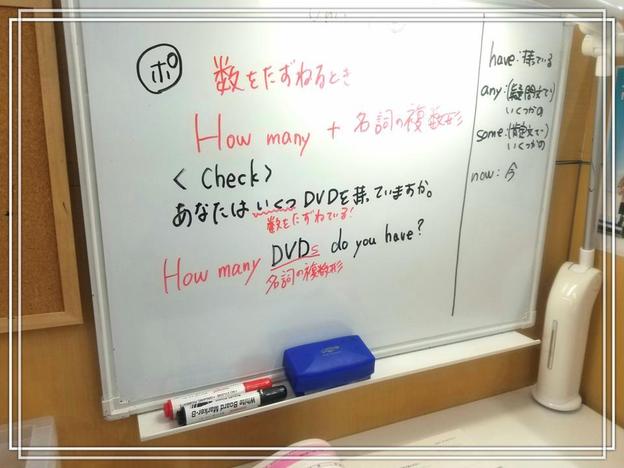 ポ
数をたずねるとき
How many + 名詞の複数形
< Check>
あなたは いくつ DVDを持っていますか。
数をたずねている!
How many DVDs do you have?
名詞の複数形
have: 持っている
any: (疑問文で)
いくつかの
some: (肯定文で)
いくつかの
now: 今
White Board Marker-B